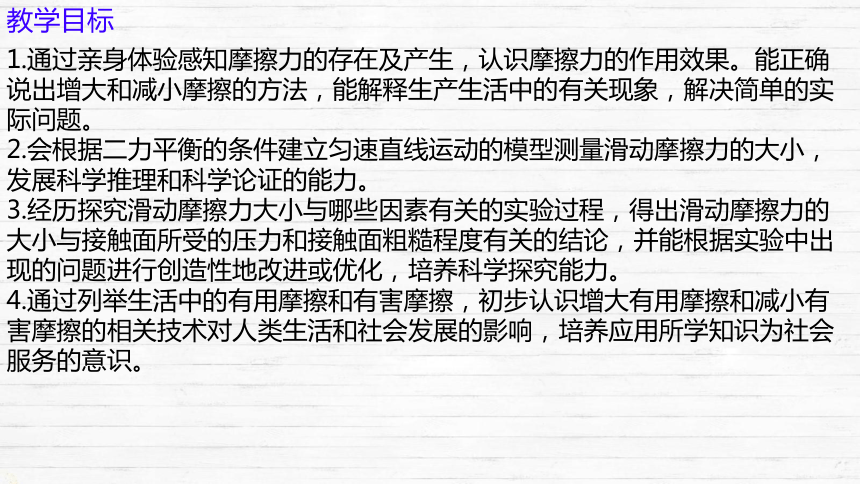 教学目标
1.通过亲身体验感知摩擦力的存在及产生，认识摩擦力的作用效果。能正确
说出增大和减小摩擦的方法，能解释生产生活中的有关现象，解决简单的实
际问题。
2.会根据二力平衡的条件建立匀速直线运动的模型测量滑动摩擦力的大小，
发展科学推理和科学论证的能力。
3.经历探究滑动摩擦力大小与哪些因素有关的实验过程，得出滑动摩擦力的
大小与接触面所受的压力和接触面粗糙程度有关的结论，并能根据实验中出
现的问题进行创造性地改进或优化，培养科学探究能力。
4.通过列举生活中的有用摩擦和有害摩擦，初步认识增大有用摩擦和减小有
害摩擦的相关技术对人类生活和社会发展的影响，培养应用所学知识为社会
服务的意识。